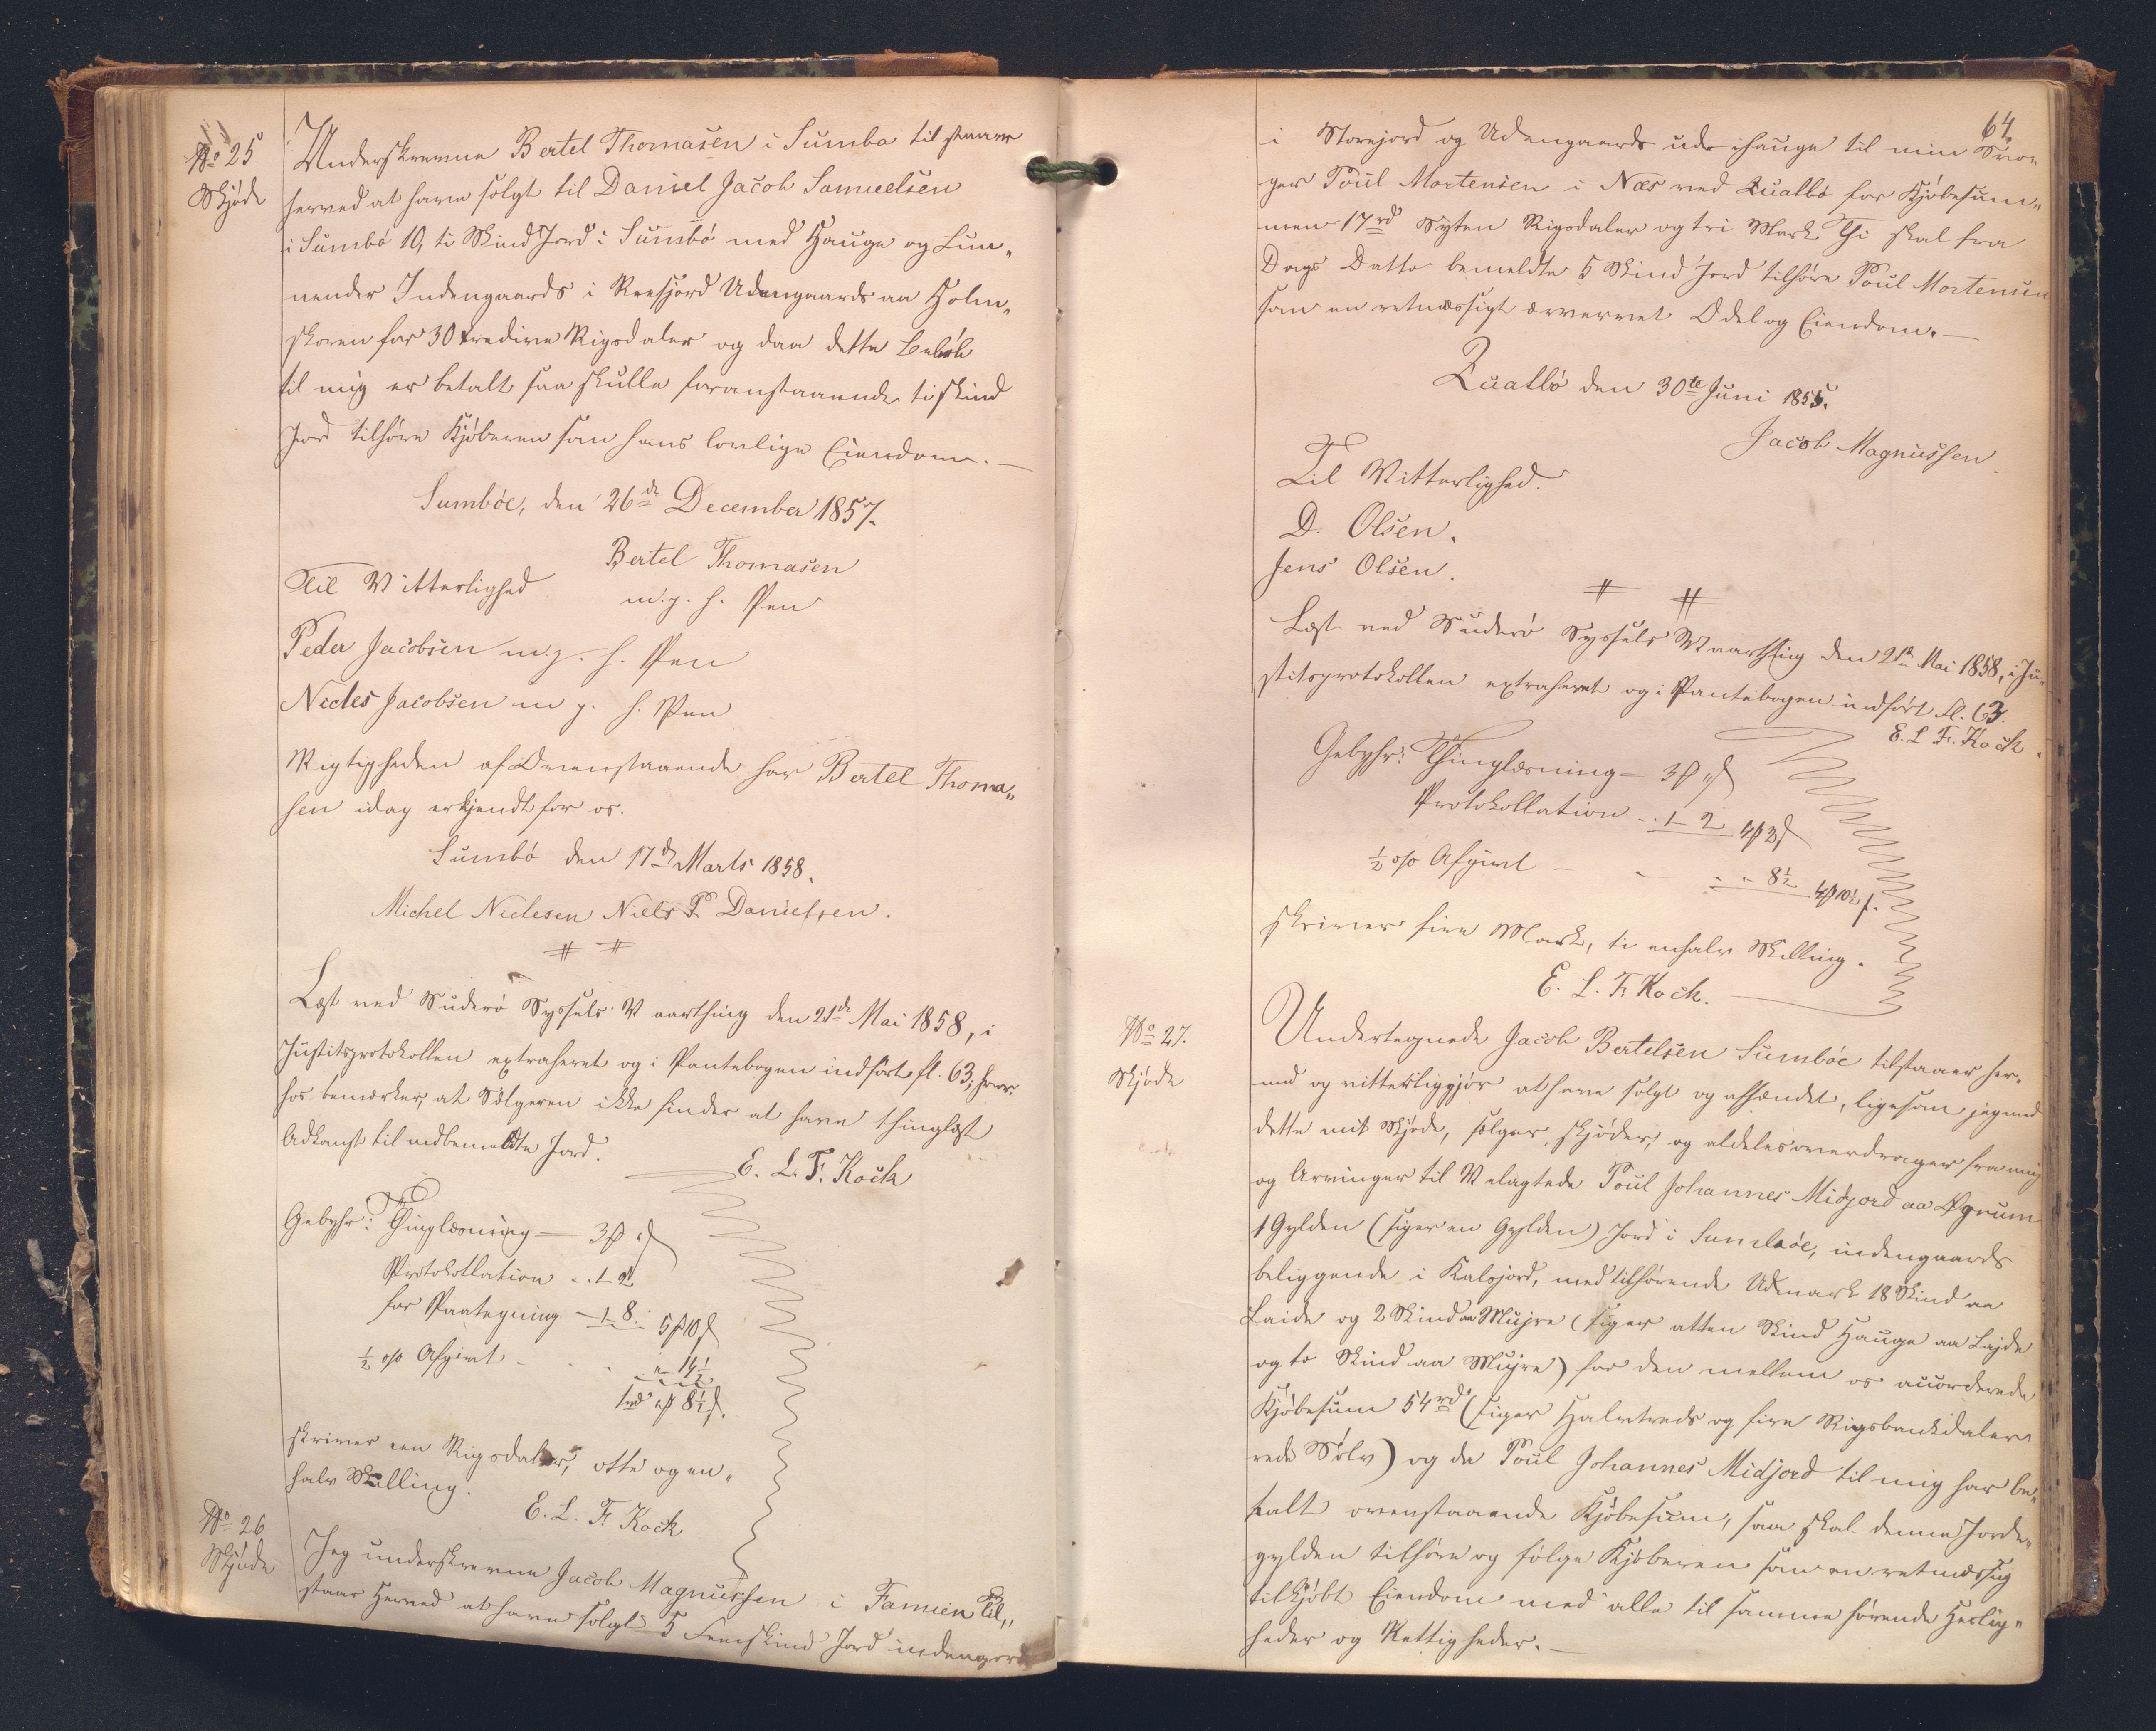 No 25
Skjøde
Underskrevne Bertel Thomasen i Sumba til staaer
herved at have solgt til Daniel Jacob Samuelsen
i Sumbö 10, ti Skind Jord i Sumbö med Hauge og Lun„
nender Indengaards i Reesjord Udengaards aa Holm„
skoren for 30 tredive Rigsdaler og daa dette Beløb
til mig er betalt saa skulle foranstaaende ti skind
Jord tilhøre Kjøberen som hans lovlige Eiendom. —
Sumböe, den 26de December 1857.
Bertel Thomasen
Til Vitterlighed m. g. h. Pen
Peder Jacobsen m. g. h. Pen
Nicles Jacobsen m g. h. Pen
Rigtigheden af Ovenstaaende har Bertel Thoma„
sen idag erkjendt for os.
Sumbö den 17de Marts 1858.
Michel Niclesen Niels P Danielsen.
Læst ved Suderö Syssels Vaarthing den 21de Mai 1858, i
Justitsprotokollen extraheret og i Pantebogen indført fl. 63; hvor-
hos bemærkes, at Sælgeren ikke findes at have thinglæst
Adkomst til ommeldte Jord.
E. L. F. Kock
Gebyhr: Thinglæsning — 3 ₻ „ ß
Protokollation - „ 1 - 2
for Paategning — 1 - 8 : 5 ₻ 10 ß
½ o/o Afgivt - - - „ - 14½
1 rd „ ₻ 8½ ß.
skriver een Rigsdaler, otte og en„
halv Skilling.
E. L. F. Kock
No 26
Skjøde
Jeg underskrevne Jacob Magnussen i Famien til„
staar Herved at have solgt 5 Femskind Jord indengards
64.
i Storejord og Udengaards uds ihauge til min Svo„
ger Poul Mortensen i Næs ved Qualbö for Kjøbesum„
men 17 rd Sytten Rigsdaler og tri Mark Thi skal fra
Dags Datto bemeldte 5 Skind Jord tilhøre Poul Mortensen
som en retmæssigt ervervet Odel og Eiendom. —
Qualbö den 30te Juni 1855.
Jacob Magnussen.
Til Vitterlighed.
D. Olsen.
Jens Olsen.
Læst ved Suderö Syssels Vaarthing den 21de Mai 1858, i Ju„
stitsprotokollen extraheret og i Pantebogen indført fl. 63.
E. L. F. Kock.
Gebyhr: Thinglæsning — 3 ₻ „ ß
Protokollation - „ 1 - 2 4 ₻ 2 ß
½ o/o Afgivt - - „ - 8½ 4 ₻ 10½ ß.
skriver fire Mark, ti enhalv Skilling.
E. L. F. Kock.
No 27.
Skjøde
Undertegnede Jacob Bertelsen Sumböe tilstaaer her-
med og vitterliggjør at have solgt og afhændet, ligesom jeg med
dette mit Skjøde, sælger, skjøder, og aldeles overdrager fra mig
og Arvinger til Velagtede Poul Johannes Midjord aa Øgrum
1 Gylden (siger en Gylden) Jord i Sumböe, indengaards
beliggende i Kalsjord, med tilhørende Udmark 18 Skind aa
Laide og 2 Skind aa Mujre (siger atten Skind Hauge aa Lajde
og to Skind aa Mujre) for den mellem os accorderede
Kjøbesum 54 rd (siger Halvtreds og fire Rigsbankdaler
rede Sølv) og da Poul Johannes Midjord til mig har be„
talt ovenstaaende Kjøbesum, saa skal denne Jorde„
gylden tilhøre og følge Kjøberen som en retmæssig
tilkjøbt Eiendom med alle til samme hørende Herlig„
heder og Rettigheder. —